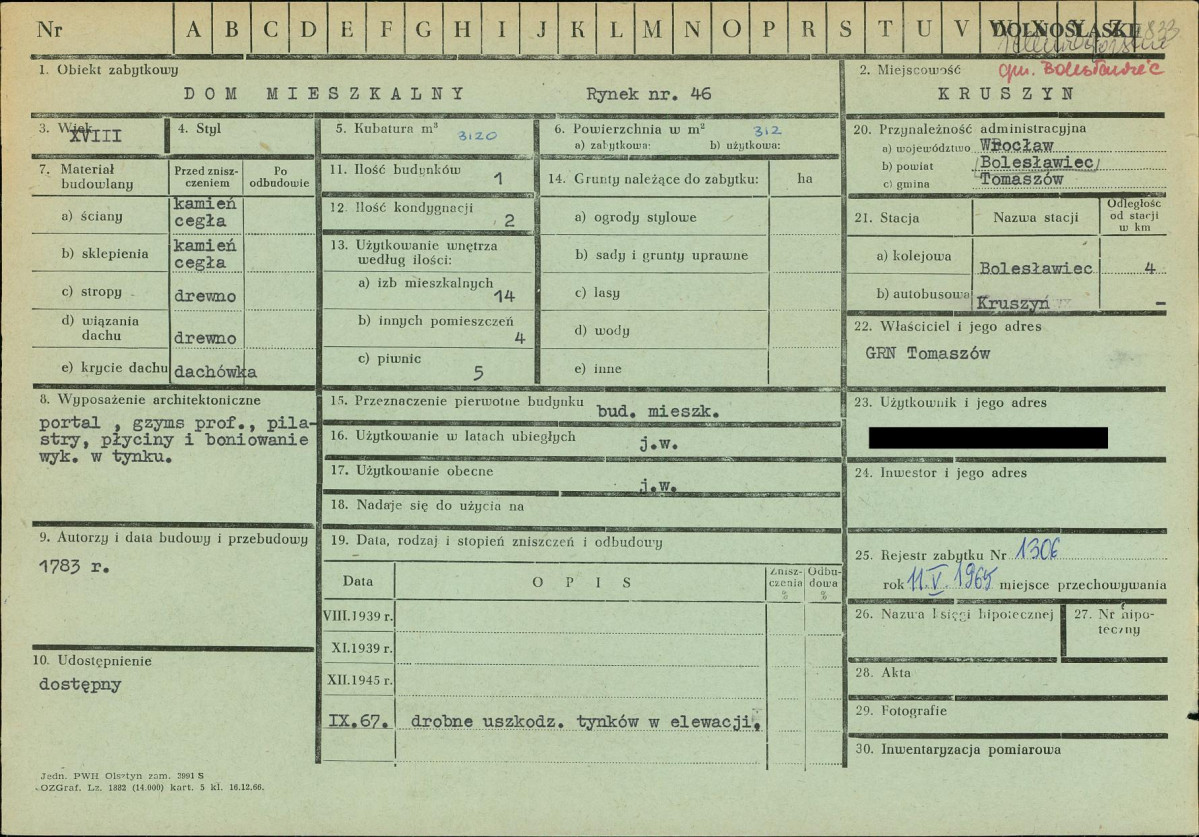 Nr A B C D E F G H I J K L M N O P R S T U V W X Y Z DOLNOŚLĄSKIE
1833
1. Obiekt zabytkowy
DOM MIESZKALNY Rynek nr. 46
2. Miejscowość gm. Bolesławiec
KRUSZYN
3. Wiek XVIII
4. Styl
5. Kubatura m³ 3120
6. Powierzchnia w m² 312
a) zabytkowa: b) użytkowa:
7. Materiał budowlany
Przed zniszczeniem
Po odbudowie
a) ściany kamień cegła
b) sklepienia kamień cegła
c) stropy drewno
d) wiązania dachu drewno
e) krycie dachu dachówka
8. Wyposażenie architektoniczne
portal , gzyms prof., pila-
stry, płyciny i boniowanie
wyk. w tynku.
9. Autorzy i data budowy i przebudowy
1783 r.
10. Udostępnienie
dostępny
11. Ilość budynków 1
12. Ilość kondygnacji 2
13. Użytkowanie wnętrza
według ilości:
a) izb mieszkalnych 14
b) innych pomieszczeń 4
c) piwnic 5
14. Grunty należące do zabytku: ha
a) ogrody stylowe
b) sady i grunty uprawne
c) lasy
d) wody
e) inne
15. Przeznaczenie pierwotne budynku bud. mieszk.
16. Użytkowanie w latach ubiegłych j.w.
17. Użytkowanie obecne j.w.
18. Nadaje się do użycia na
19. Data, rodzaj i stopień zniszczeń i odbudowy
Data OPIS Zniszczenia % Odbudowa %
VIII.1939 r.
XI.1939 r.
XII.1945 r.
IX.67. drobne uszkodz. tynków w elewacji.
20. Przynależność administracyjna
a) województwo Wrocław
b) powiat (Bolesławiec)
c) gmina Tomaszów
21. Stacja Nazwa stacji Odległość od stacji w km
a) kolejowa Bolesławiec 4
b) autobusowa Kruszyń -
22. Właściciel i jego adres
GRN Tomaszów
23. Użytkownik i jego adres
24. Inwestor i jego adres
25. Rejestr zabytku Nr 1306
rok 11.V.1965 miejsce przechowywania
26. Nazwa księgi hipotecznej
27. Nr hipoteczny
28. Akta
29. Fotografie
30. Inwentaryzacja pomiarowa
Jedn. PWH Olsztyn zam. 3991 S
OZGraf. Lz. 1882 (14.000) kart. 5 kl. 16.12.66.